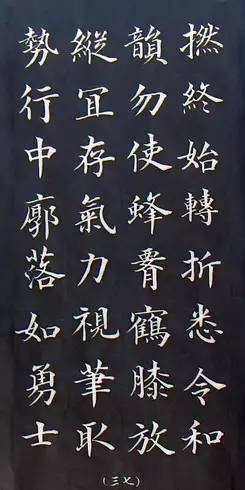 撚終始轉折悉令和
韻勿使蜂腰鶴膝放
縱冝存氣力視筆取
勢行中廓落如勇士
(三七)